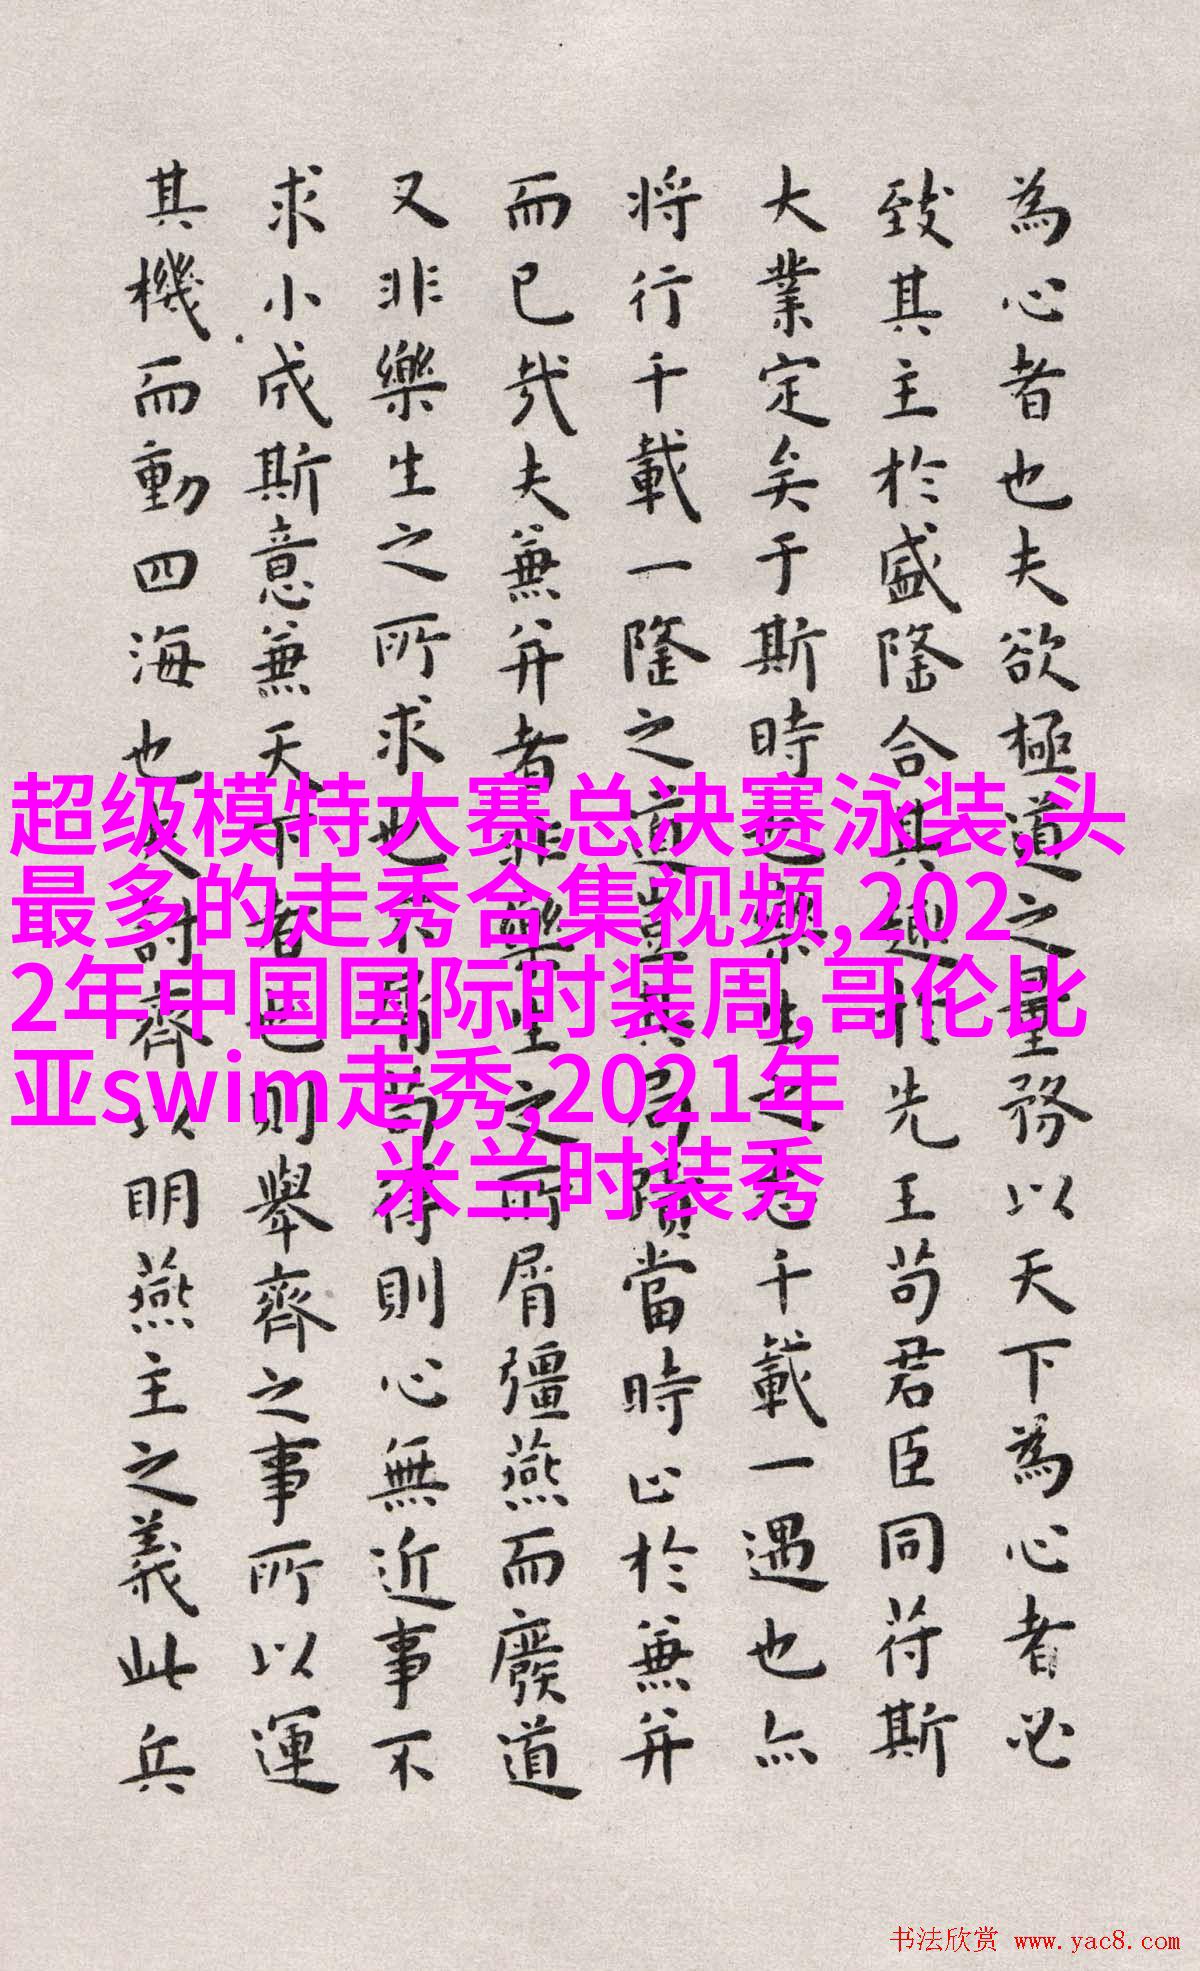 為心者也夫欲極道之量務以天下為心者必
致其主於盛隆合其趣於先王苟君臣同符斯
大業定矣于斯時也樂生之志千載一遇也亦
將行千載一隆之道豈其局蹟當時止於兼并
而已哉夫兼并者非樂生之所屑彊燕而廢道
又非樂生之所求也不屑苟得則心無近事不
求小成斯意兼天下者也則舉齊之事所以運
其機而動四海也夫討齊以明燕主之義此兵
超级模特大赛总决赛泳装,头
最多的走秀合集视频,202
2年中国国际时装周,哥伦比
亚swim走秀,2021年
米兰时装秀
书法欣赏 www.yac8.com